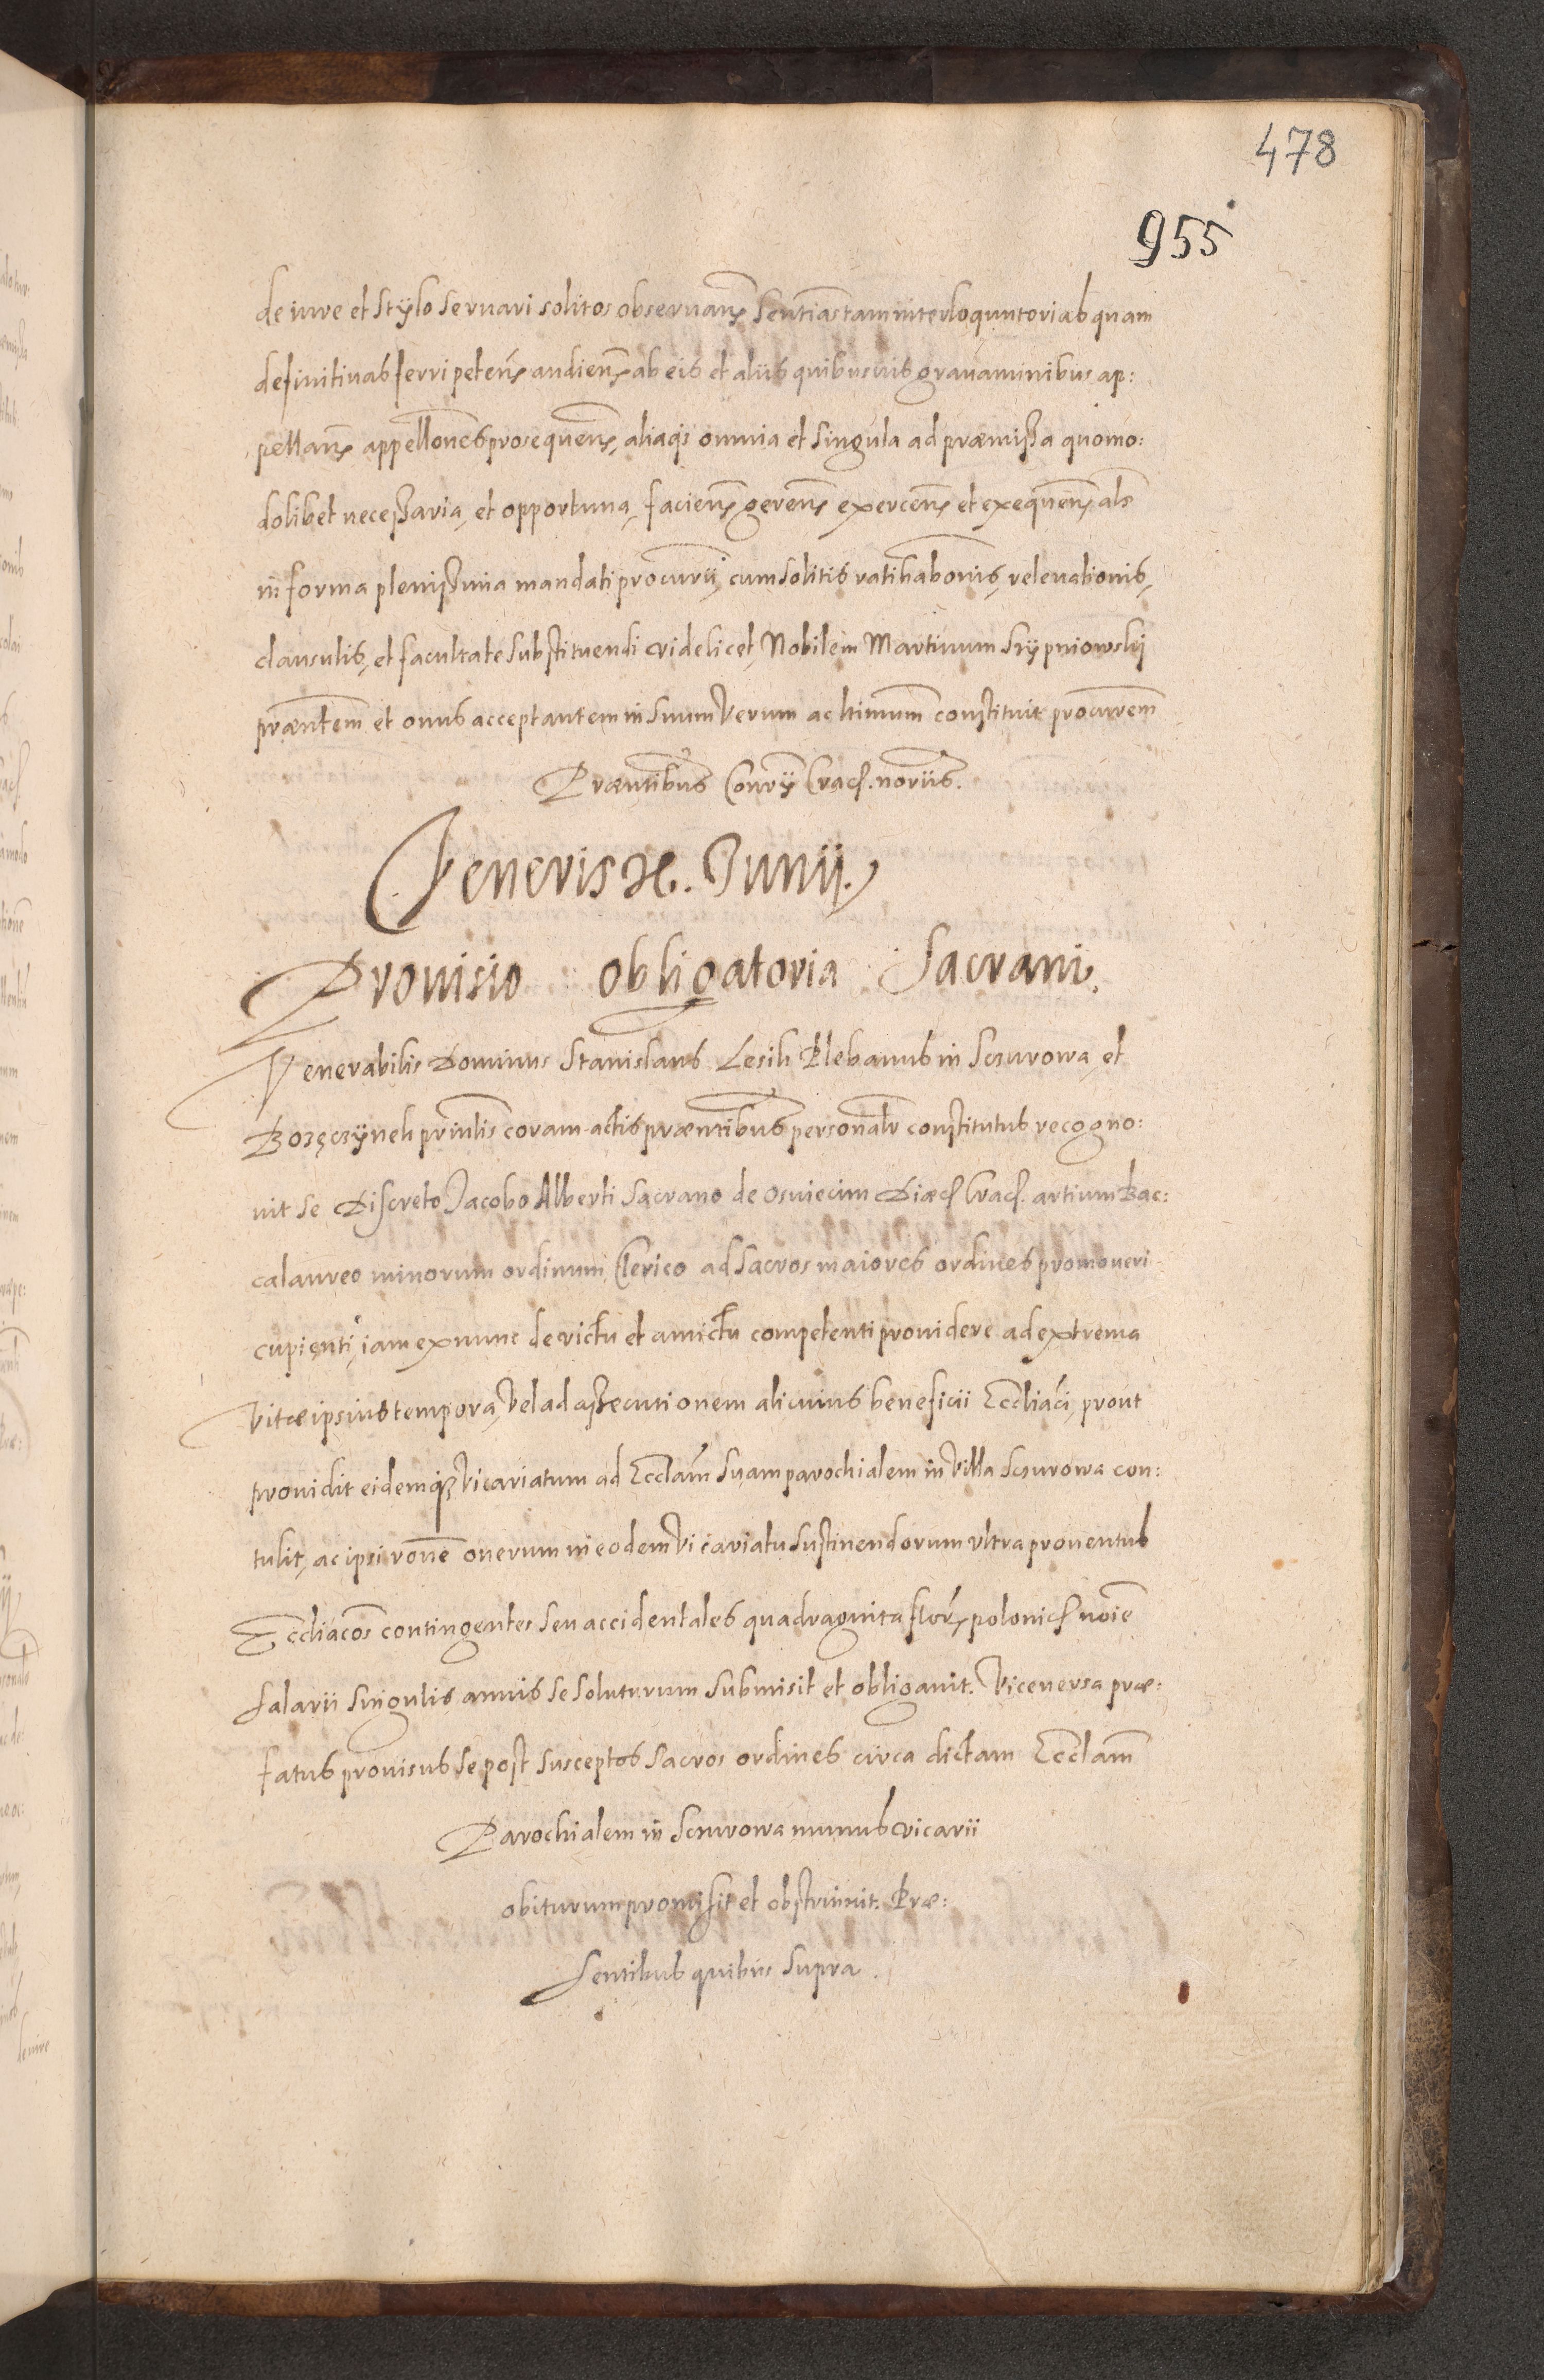 478
955
de iure et stÿlo seruari solitos obseruan̄ sentias̄ tam interloquutorias quam
definitiuas ferri peten̄ audien̄ ab eis et aliis quibusuis grauaminibus ap:
pellan̄ appellōnes prosequen̄, aliaqȝ omnia et singula ad præmissa quomo:
dolibet necessaria, et opportuna, facien̄ geren̄ exercen̄ et exequen̄ als̄
in forma plenissima mandati procur̄ii, cum solitis ratihabōnis, releuationis,
clausulis, et facultate substituendi videlicet, Nobilem Martinum Srÿpniowskj
præntem̄ et onus acceptantem in suum Verum ac ltimum̄ constituit procurrem̄
Præntibus̄ Conr̄ÿ Crac. noriis̄.
Veneris 26. Junii.
Prouisio obligatoria Sacrani.
Venerabilis Dominus Stanislaus Lesik Plebanus in Sczurowa, et
Bozęczÿnek prinlis̄ coram actis præntibus̄ personalr̄ constitutus recogno:
uit se Discreto Jacobo Alberti Sacrano de Osuiecim Diæc Crac. artium Bac:
calaureo minorum ordinum Clerico ad sacros maiores ordines promoueri
cupienti, iam ex nunc de victu et amictu competenti prouidere ad extrema
Vitæ ipsius tempora, Vel ad assecutionem alicuius beneficii Ecclīaci, prout
prouidit eidemqȝ Vicariatum ad Ecclam̄ suam parochialem in Villa Sczurowa con:
tulit, ac ipsi ronē onerum in eodem Vicariatu sustinendorum vltra prouentus
Ecclīacos contingentes seu accidentales quadraginta flor̄ polonic noīe
salarii singulis annis se soluturum submisit et obligauit. Viceuersa præ:
fatus prouisus se post susceptos sacros ordines circa dictam Ecclam̄
Parochialem in Sczurowa munus vicarii
obiturum promisit et obstrinxit. Præ:
sentibus quibus supra.